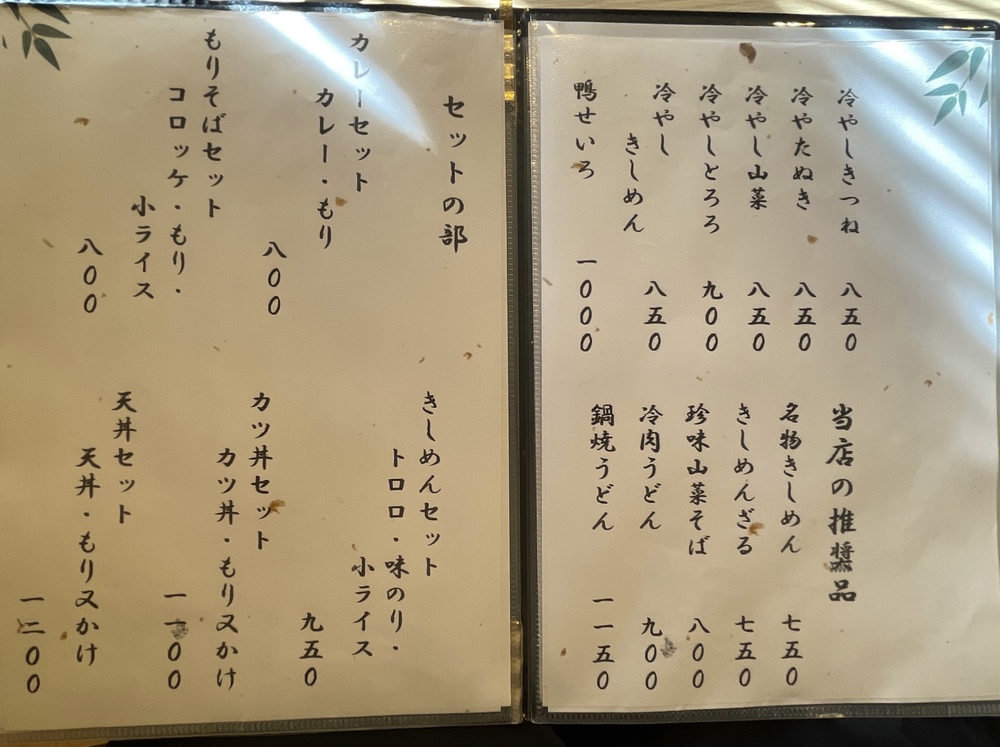 冷やしきつね 八五0
冷やたぬき 八五0
冷やし山菜 八五0
冷やしとろろ 九00
冷やし
きしめん 八五0
鴨せいろ 一000
当店の推奬品
名物きしめん 七五0
きしめんざる 七五0
珍味山菜そば 八00
冷肉うどん 九00
鍋焼うどん 一一五0
セットの部
カレーセット
カレー・もり
八00
もりそばセット
コロッケ・もり・
小ライス
八00
きしめんセット
トロロ・味のり・
小ライス
九五0
カツ丼セット
カツ丼・もり又かけ
一一00
天丼セット
天丼・もり又かけ
一二00